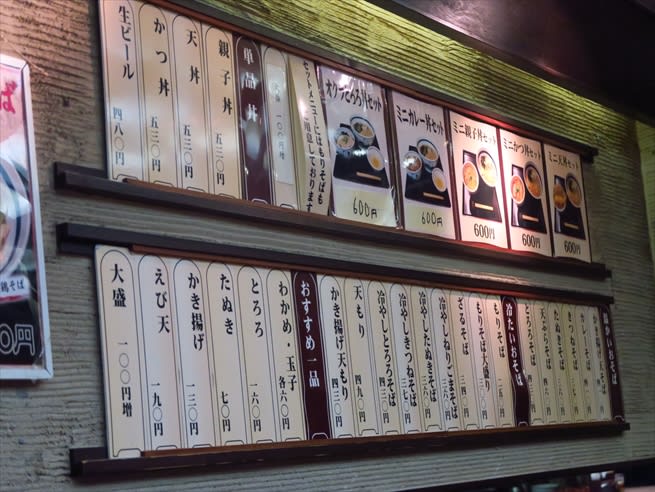 ミニ天丼セット
600円
ミニかつ丼セット
600円
ミニ親子丼セット
600円
ミニカレー丼セット
600円
オクラとろろ丼セット
600円
セットメニューにはもりそばも
ご用意しております
一〇〇円増
単品丼
親子丼 五三〇円
天丼 五三〇円
かつ丼 五三〇円
生ビール 四八〇円
かいおそば
きつねそば
たぬきそば
天ぷらそば
とろろそば
冷たいおそば
もりそば
もりそば大盛り
ざるそば
冷やしねりごまそば
冷やしたぬきそば
冷やしきつねそば
冷やしとろろそば
天もり 四九〇円
かき揚げ天もり 四三〇円
おすすめ一品
わかめ・玉子 各六〇円
とろろ 一六〇円
たぬき 七〇円
かき揚げ 一三〇円
えび天 一九〇円
大盛 一〇〇円増
ば
鶏そば
0円